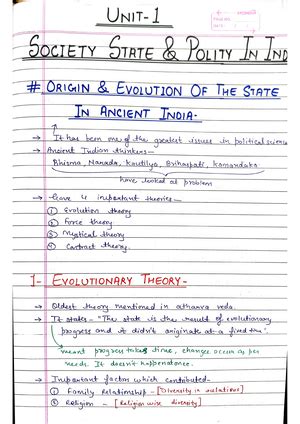 UNIT-1
SOCIETY STATE & POLITY IN IND
# ORIGIN & EVOLUTION OF THE STATE
IN ANCIENT INDIA-
→ It has been one of the greatest issues in political science
→ Ancient Indian thinkers-
Bhisma, Narada, Kautilya, Brihaspati, Kamandaka
have looked at problem
→ Gave 4 important theories-
① Evolution theory
② Force theory
③ Mystical theory
④ Contract theory.
1- EVOLUTIONARY THEORY-
→ Oldest theory mentioned in atharva veda.
→ It states- "The state is the result of evolutionary
progress and it didn't originate at a fixed time".
meant progress takes time, changes occur as per
needs. It doesn't happen at once.
→ Important factors which contributed-
① Family Relationship - [Diversity in relations]
② Religion - [Religion wise diversity]